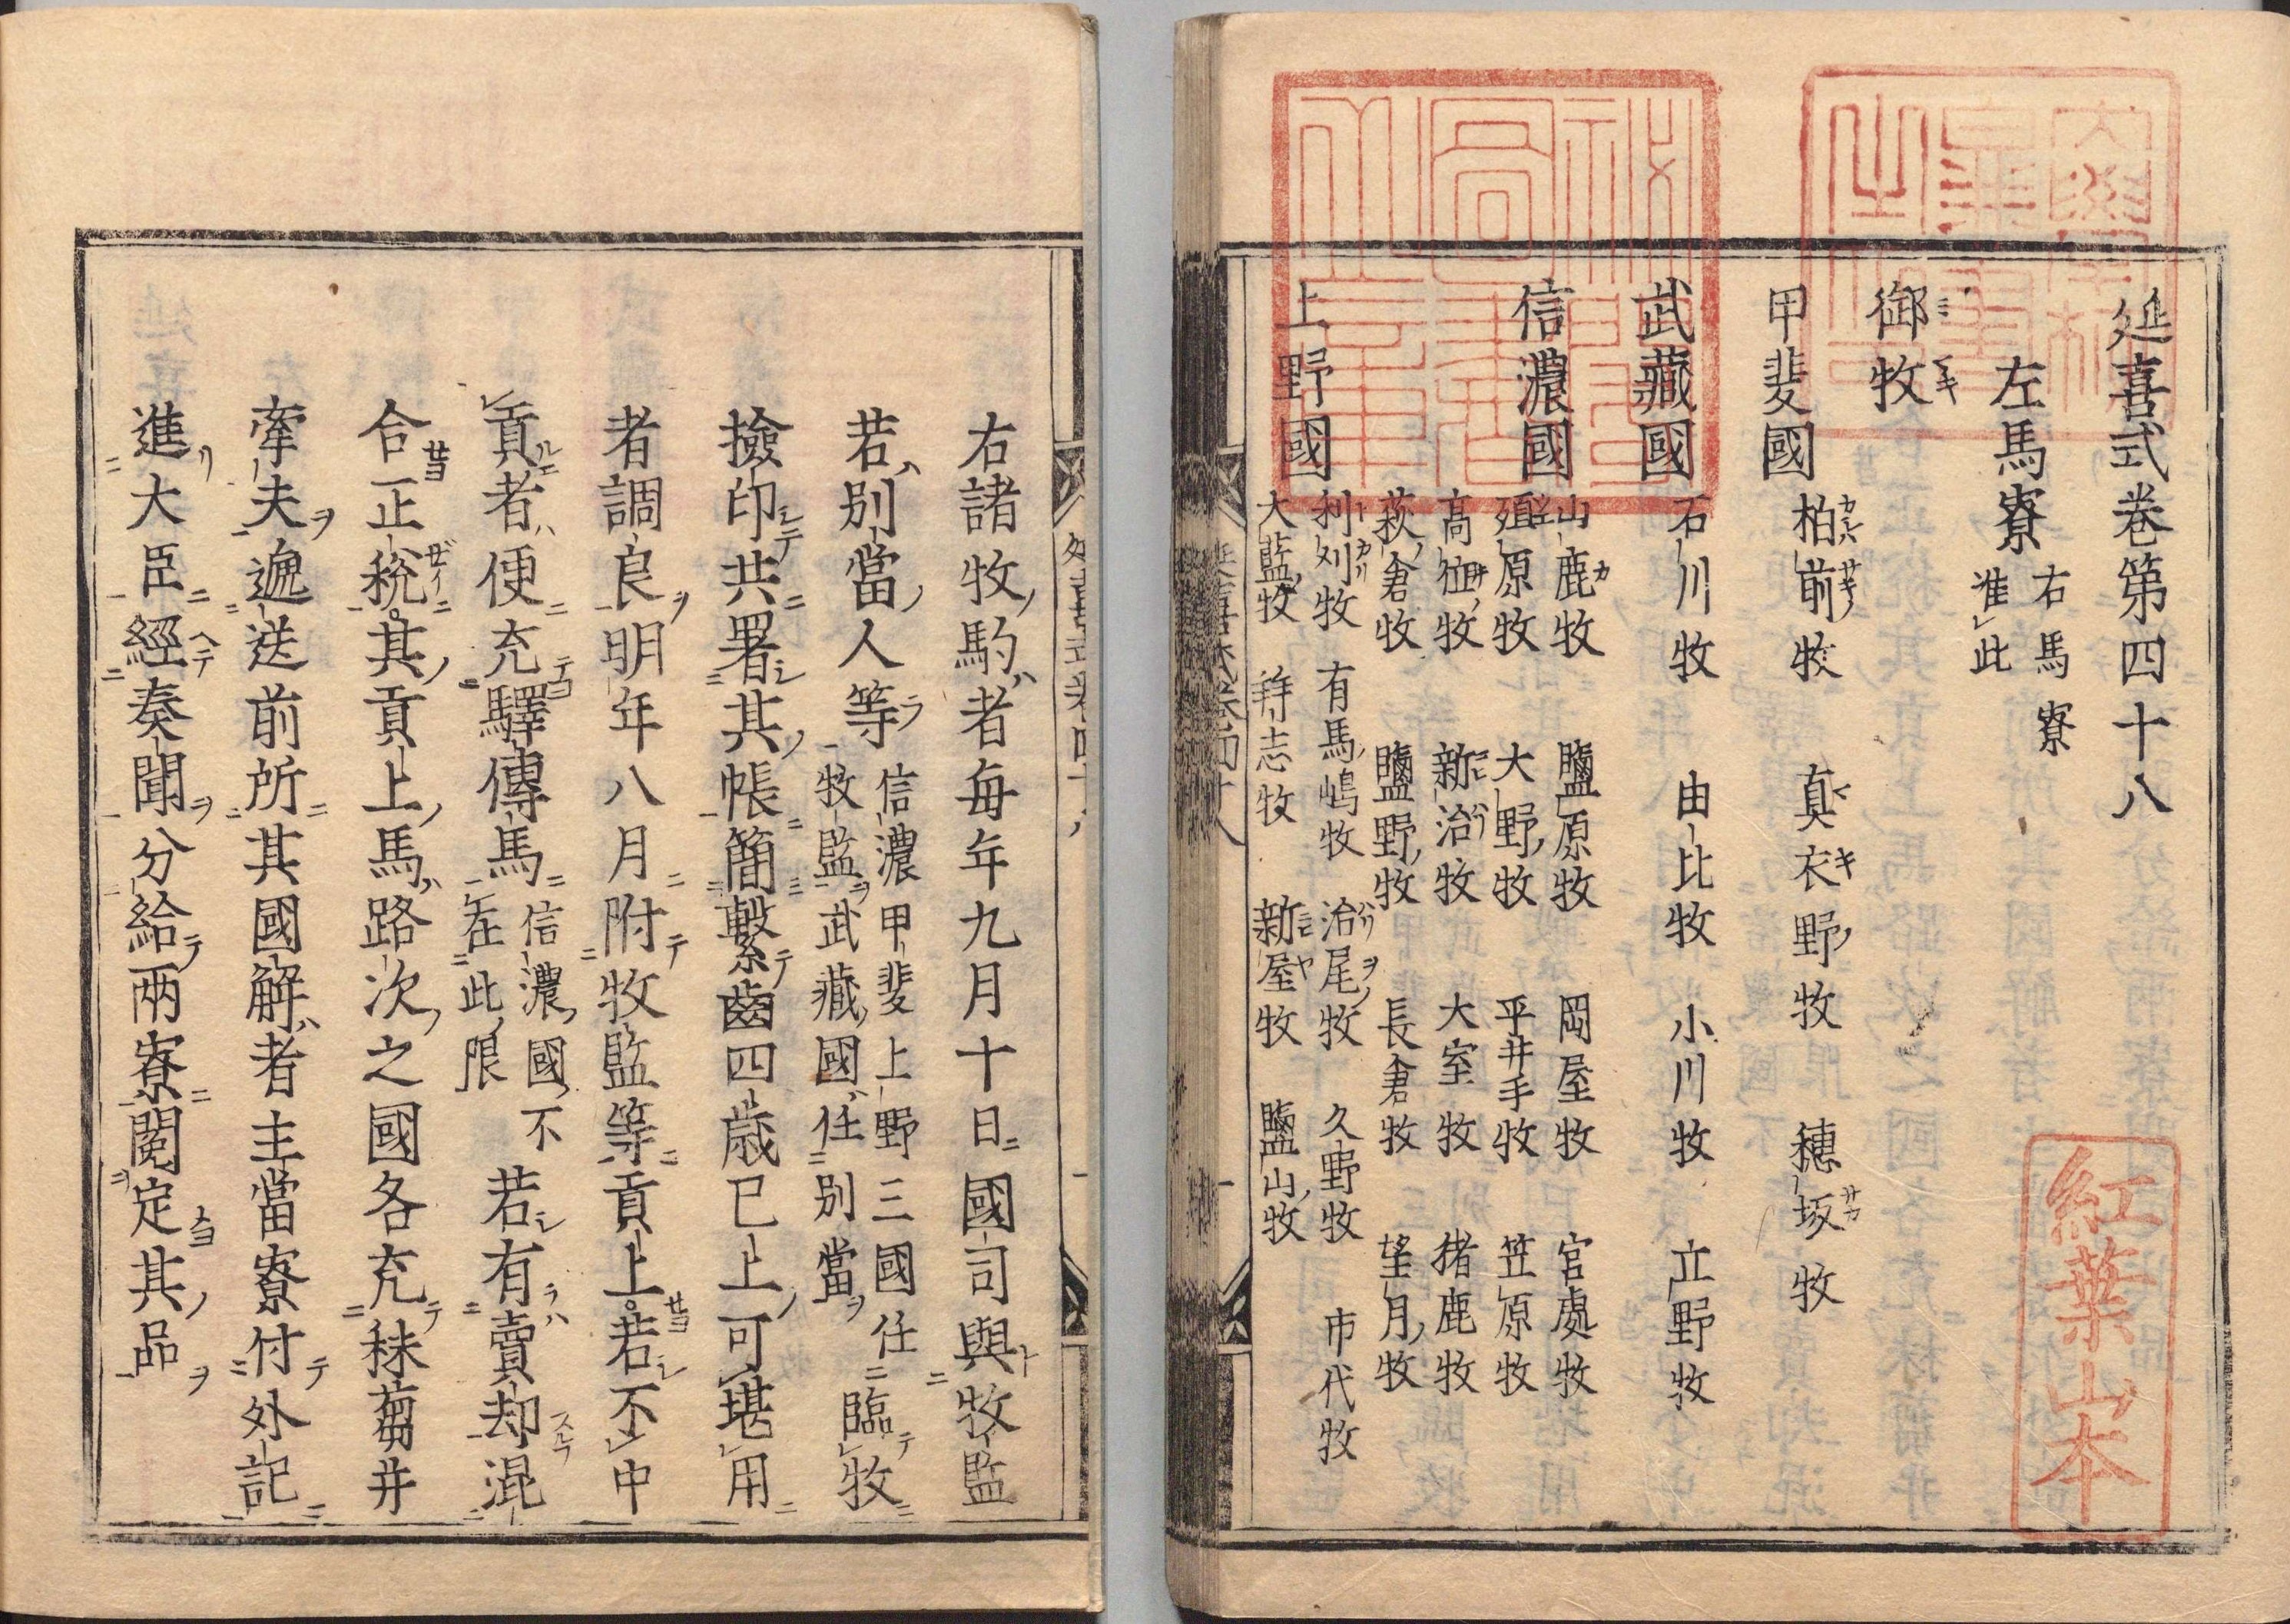 延喜式卷第四十八
左馬寮 右馬寮
准此
御牧
甲斐國
柏前牧 真衣野牧 穂坂牧
武藏國
石川牧 由比牧 小川牧 立野牧
信濃國
山鹿牧 鹽原牧 岡屋牧 宮處牧
殖原牧 大野牧 平井手牧 笠原牧
高位牧 新治牧 大室牧 猪鹿牧
萩倉牧 鹽野牧 長倉牧 望月牧
上野國
利刈牧 有馬嶋牧 治尾牧 久野牧 市代牧
大藍牧 拜志牧 新屋牧 鹽山牧
右諸牧駒者每年九月十日國司與牧監
若別當人等 信濃甲斐上野三國任
牧監武藏國任別當 臨牧
撿印共署其帳簡繫齒四歲已上可堪用
者調良明年八月附牧監等貢上若不中
貢者便充驛傳馬 信濃國不
在此限 若有賣却混
合正稅其貢上馬路次之國各充秣蒭并
牽夫遞送前所其國解者主當寮付外記
進大臣經奏聞分給兩寮閱定其品
紅葉山本